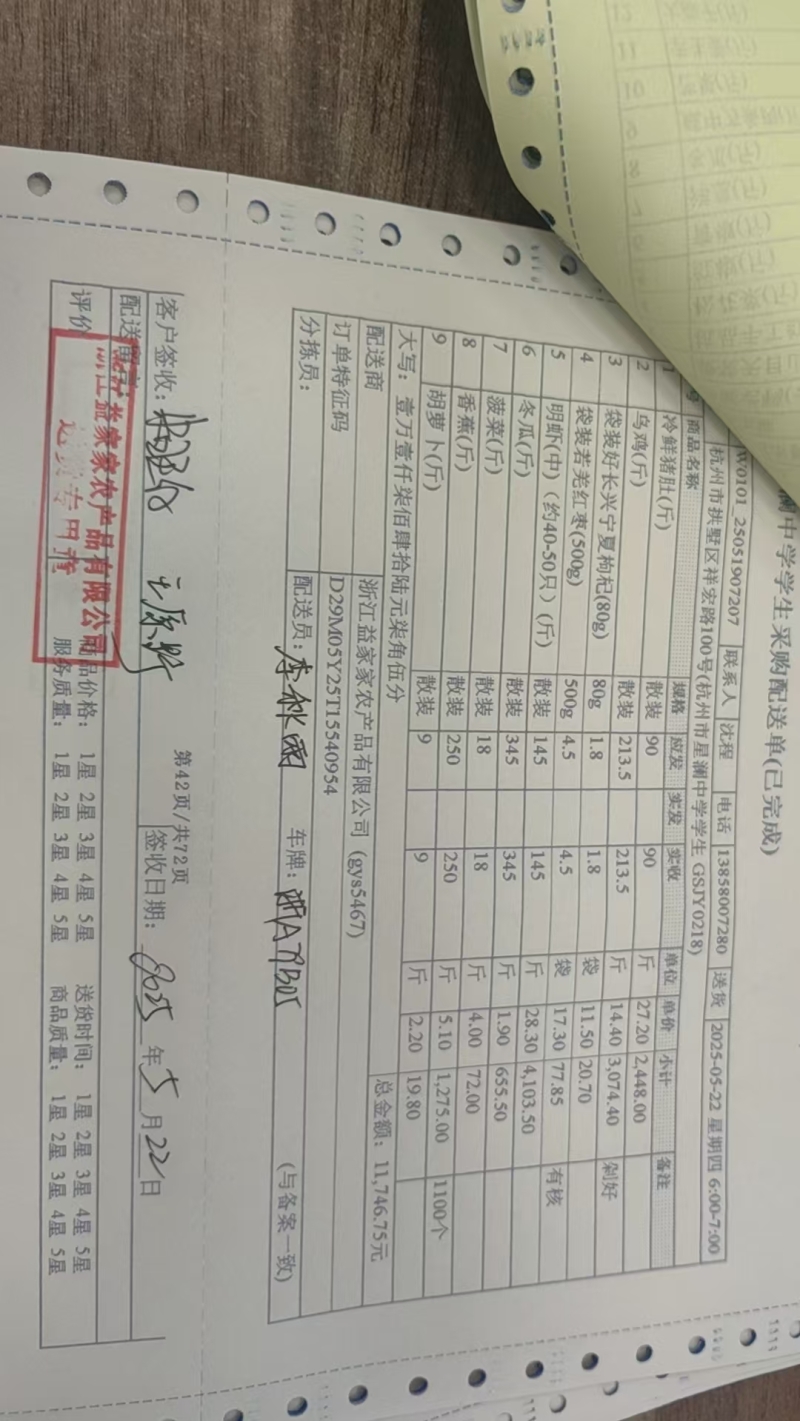 澜中学学生采购配送单(已完成)
W0101_25051907207 联系人 沈程 电话 13858007280 送货 2025-05-22 星期四 6:00-7:00
杭州市拱墅区祥宏路100号(杭州市星澜中学学生 GSJY0218)
号 商品名称 规格 应发 实发 实收 单位 单价 小计 备注
1 冷鲜猪肚(斤) 散装 90 90 斤 27.20 2,448.00
2 乌鸡(斤) 散装 213.5 213.5 斤 14.40 3,074.40 剁好
3 袋装好长兴宁夏枸杞(80g) 80g 1.8 1.8 袋 11.50 20.70
4 袋装若羌红枣(500g) 500g 4.5 4.5 袋 17.30 77.85 有核
5 明虾(中)(约40-50只)(斤) 散装 145 145 斤 28.30 4,103.50
6 冬瓜(斤) 散装 345 345 斤 1.90 655.50
7 菠菜(斤) 散装 18 18 斤 4.00 72.00
8 香蕉(斤) 散装 250 250 斤 5.10 1,275.00 1100个
9 胡萝卜(斤) 散装 9 9 斤 2.20 19.80
大写：壹万壹仟柒佰肆拾陆元柒角伍分 总金额：11,746.75元
配送商 浙江益家家农产品有限公司 (gys5467)
订单特征码 D29M05Y25T15540954
分拣员： 配送员：李秋雨 车牌： (与备案一致)
第42页/共72页
客户签收： 签收日期：2025年5月22日
配送
评价 商品价格： 1星 2星 3星 4星 5星 送货时间： 1星 2星 3星 4星 5星
服务质量： 1星 2星 3星 4星 5星 商品质量： 1星 2星 3星 4星 5星
浙江益家家农产品有限公司
专用章